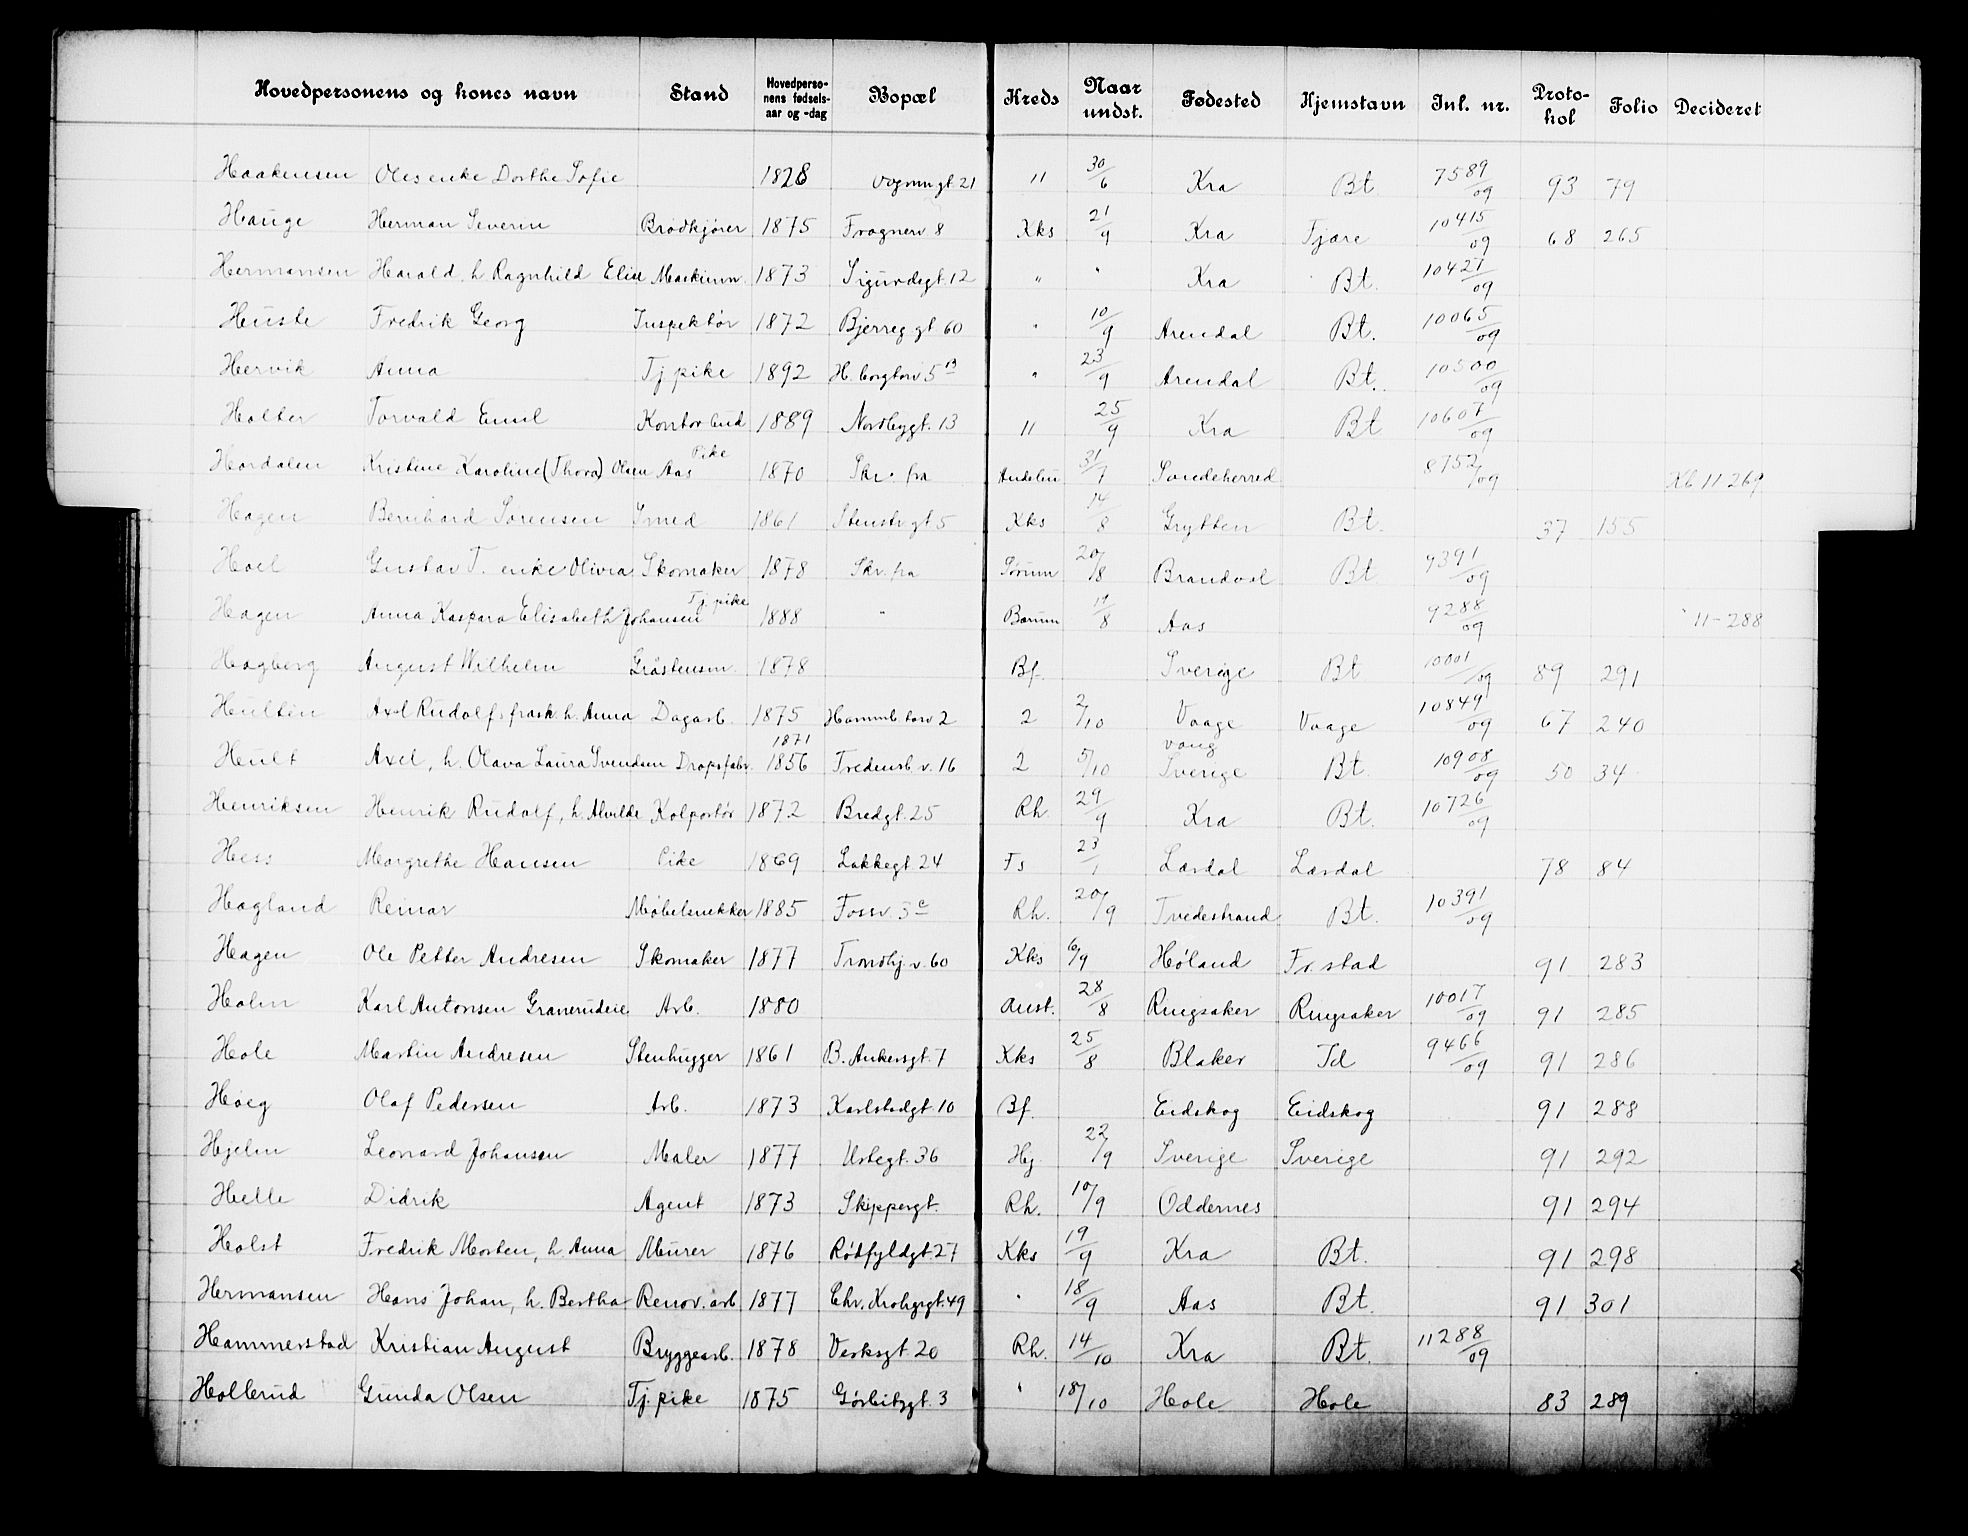 Hovedpersonens og kones navn Stand Hovedpersonens fødselsaar og -dag Bopæl Kreds Naar undst. Fødested Hjemstavn Inl. nr. Protokol Folio Decideret
Haakensen Oles enke Dorthe Sofie 1828 Vognmgt. 21 11 30/6 Kra Bt 7589/09 93 79
Hauge Herman Severin Brødkjører 1875 Frognerv 8 Kks 21/9 Kra Tjøre 10415/09 68 265
Hermansen Harald, h. Ragnhild Elise Maskinm. 1873 Sigurdsgt. 12 " " Kra Bt. 10421/09
Huste Fredrik Georg Inspektør 1872 Bjerreg.gt 60 " 10/9 Arendal Bt. 10065/09
Hervik Anna Tj pike 1892 H. borgtorv 5 B " 23/9 Arendal Bt. 10500/09
Holter Torvald Emil Kontorbud 1889 Nordbygt. 13 11 25/9 Kra Bt 10607/09
Hordalen Kristine Karoline (Thora) Olsen Aas Pike 1870 Skr. fra Andebu 31/7 Sandeherred 8752/09 Kb 11-269
Hagen Bernhard Sorensen Smed 1861 Stenstrgt 5 Kks 14/8 Grytten Bt. 37 155
Hoel Gustav T. enke Olivia Skomaker 1878 Skr. fra Sørum 20/8 Brandval Bt 9391/09
Hagen Anna Kaspara Elisabeth Johansen Tj. pike 1888 " Bærum 19/8 Aas 9288/09 " 11-288
Hagberg August Wilhelm Gråstensm. 1878 Bf. Sverige Bt 10001/09 89 291
Hultén Axel Rudolf, frask. h. Anna Dagarb. 1875 Hammb. torv 2 2 2/10 Vaage Vaage 10849/09 67 240
Hult Axel, h. Olava Laura Svendsen Dropsfabr. 1871 1856 Fredensb. v. 16 2 5/10 vang Sverige Bt. 10908/09 50 34
Henriksen Henrik Rudolf, h. Alvilde Kolportør 1872 Bredgt. 25 Rh. 29/9 Kra Bt. 10726/09
Hess Margrethe Hansen Pike 1869 Lakkegt 24 Fs 23/1 Lærdal Lærdal 78 84
Hagland Reinar Møbelsnekker 1885 Fossv. 3 c Rh. 20/9 Tvedestrand Bt. 10391/09
Hagen Ole Petter Andresen Skomaker 1877 Trondhj. v. 60 Kks 6/9 Høland Fr. stad 91 283
Holm Karl Antonsen Granerudeie Arb. 1880 Aust. 28/8 Ringsaker Ringsaker 10017/09 91 285
Hole Martin Andresen Stenhugger 1861 B. Ankersgt. 7 Kks 25/8 Blaker Td 9466/09 91 286
Høeg Olaf Pedersen Arb. 1873 Karlstadgt. 10 Bf. Eidskog Eidskog 91 288
Hjelm Leonard Johansen Maler 1877 Urtegt. 36 Hg. 22/9 Sverige Sverige 91 292
Helle Didrik Agent 1873 Skippergt. Rh. 10/9 Oddernes 91 294
Holst Fredrik Morten, h. Anna Murer 1876 Rødfyldgt. 27 Kks 19/9 Kra Bt. 91 298
Hermansen Hans Johan, h. Bertha Renov. arb 1877 Chr. Krohgsgt. 49 " 18/9 Aas Bt. 91 301
Hammerstad Kristian August Bryggearb. 1878 Verksgt 20 Rh. 14/10 Kra Bt. 11288/09
Hollerud Gunda Olsen Tj. pike 1875 Gørbitzgt. 3 " 18/10 Hole Hole 83 289